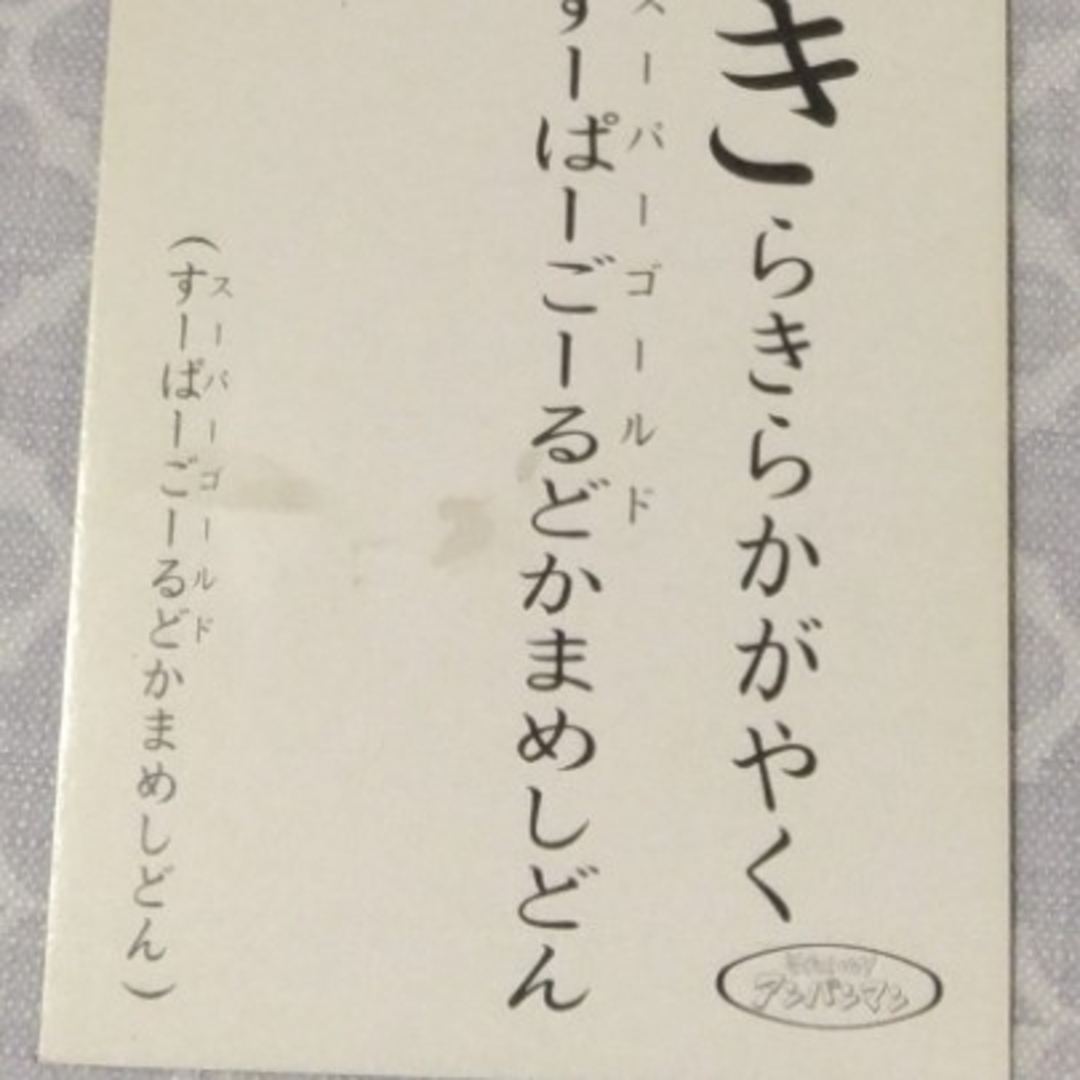 きらきらかがやく
スーパーゴールド
すーぱーごーるどかまめしどん
スーパーゴールド
(すーぱーごーるどかまめしどん)
アンパンマン